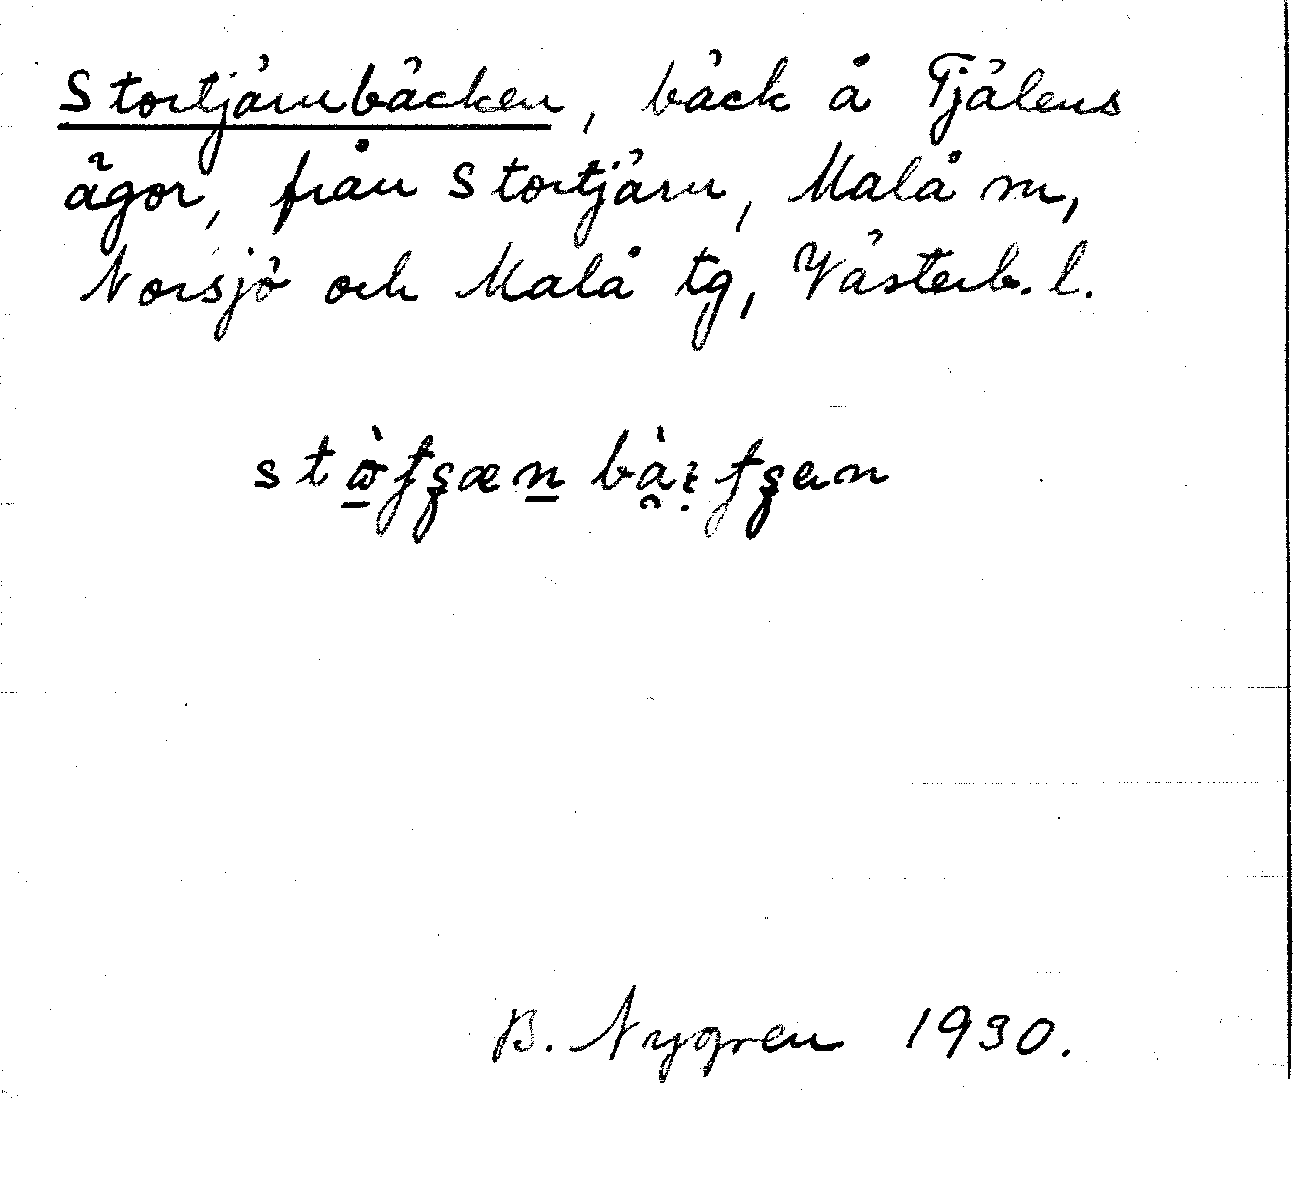 Stortjärnbäcken, bäck å Tjälens
ägor, från Stortjärn, Malå sn,
Norsjö och Malå tg, Västerb. l.
B. Nygren 1930.